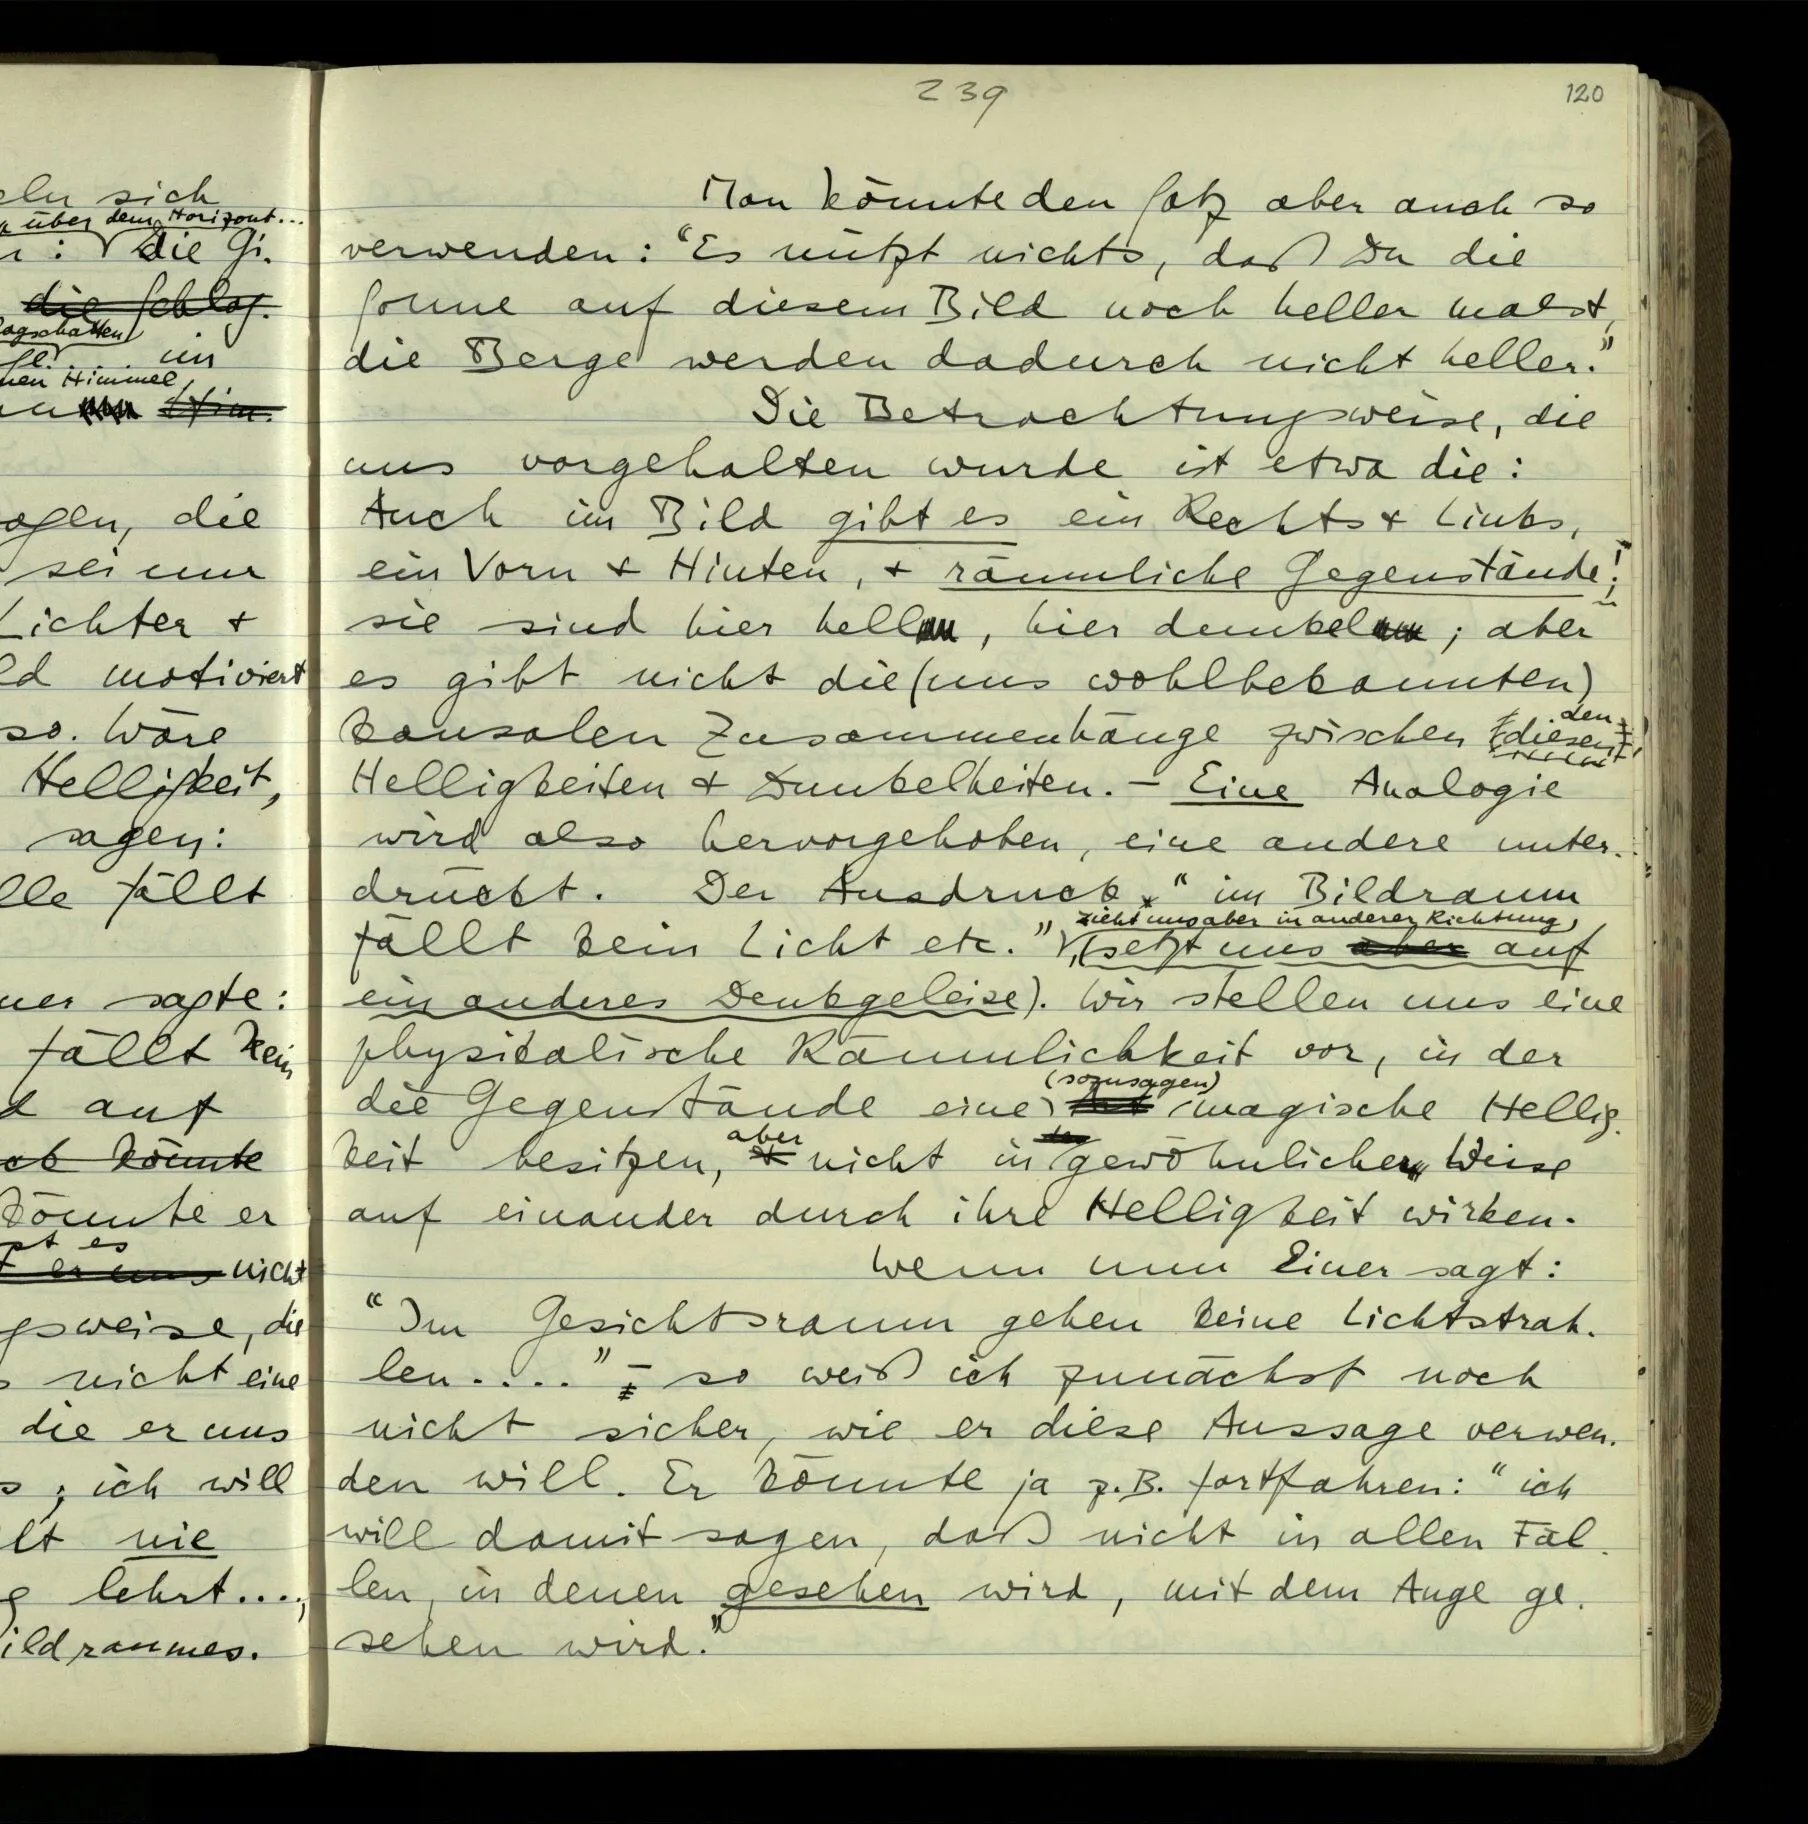 eln sich
über dem Horizont...
: die Gi.
die Schlag.
lagschatten
im
nen Himmel,
Him.
agen, die
sei nur
Lichter +
ld motiviert
so. Wäre
Helligkeit,
sagen:
lle fällt
ner sagte:
fällt kein
d auf
ob könnte
könnte er
st es
er uns nicht
gsweise, die
s nicht eine
die er uns
s; ich will
lt nie
g lehrt....,
ildraumes.
239
120
Man könnte den Satz aber auch so
verwenden: “Es nützt nichts, daß Du die
Sonne auf diesem Bild noch heller malst,
die Berge werden dadurch nicht heller.”
Die Betrachtungsweise, die
uns vorgehalten wurde ist etwa die:
Auch im Bild gibt es ein Rechts + Links,
ein Vorn + Hinten, + räumliche Gegenstände;
sie sind hier hell, hier dunkel; aber
es gibt nicht die (uns wohlbekannten)
den
kausalen Zusammenhänge zwischen diesen
Helligkeiten + Dunkelheiten. – Eine Analogie
wird also hervorgehoben, eine andere unter-
drückt. Der Ausdruck “im Bildraum
zieht uns aber in anderer Richtung,
fällt kein Licht etc.” (setzt uns aber auf
ein anderes Denkgeleise). Wir stellen uns eine
physikalische Räumlichkeit vor, in der
(sozusagen)
die Gegenstände eine Art magische Hellig-
aber
keit besitzen, + nicht in gewöhnlicher Weise
auf einander durch ihre Helligkeit wirken.
Wenn nun Einer sagt:
“Im Gesichtsraum gehen keine Lichtstrah-
len....” – so weiß ich zunächst noch
nicht sicher, wie er diese Aussage verwen-
den will. Er könnte ja z.B. fortfahren: “ich
will damit sagen, daß nicht in allen Fäl-
len, in denen gesehen wird, mit dem Auge ge-
sehen wird.”